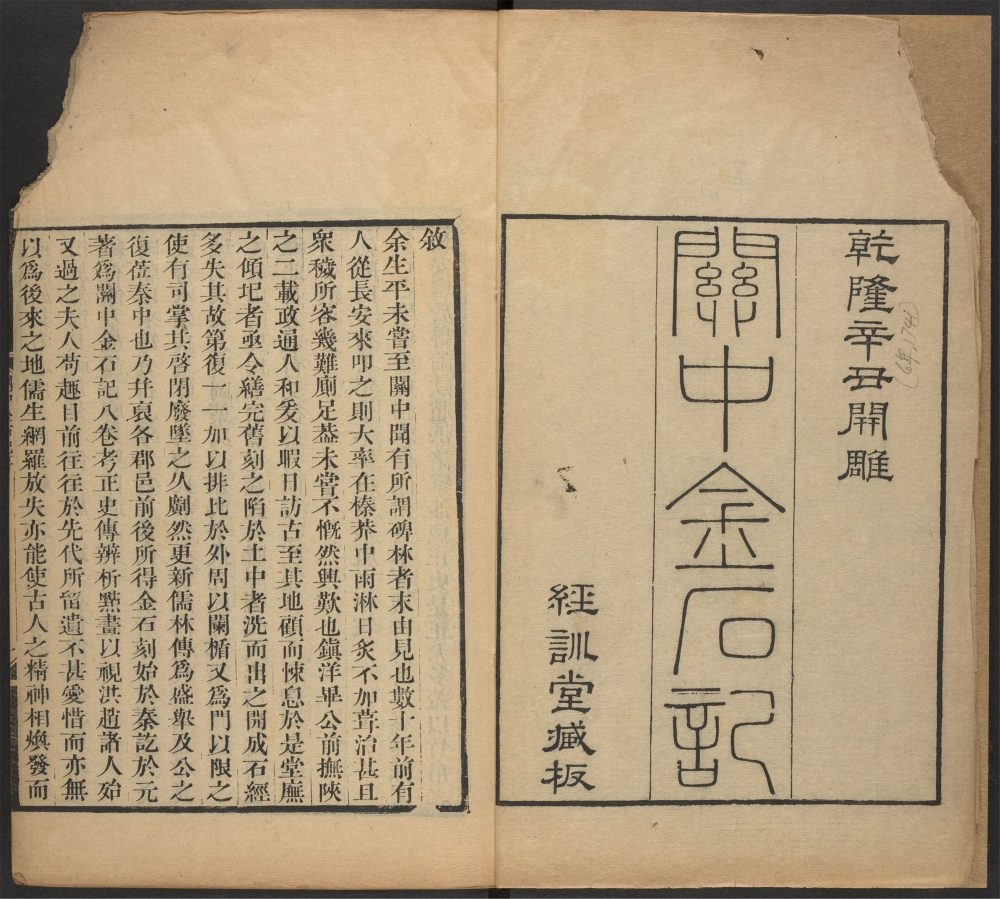 乾隆辛丑開雕
關中金石記
經訓�藏板
敘
余生平未嘗至關中聞有所謂碑林者末由見也數十年前有
人從長安來叩之則大率在榛莽中雨淋日炙不加葺治甚且
衆穢所容幾難廁足葢未嘗不慨然興歎也鎭洋畢公前撫陝
之二載政通人和爰以暇日訪古至其地顧而悚息於是堂廡
之傾圮者亟令繕完舊刻之陷於土中者洗而出之開成石經
多失其故第復一一加以排比於外周以闌楯又爲門以限之
使有司掌其啓閉廢墜之久劃然更新儒林傳爲盛舉及公之
復莅秦中也乃幷裒各郡邑前後所得金石刻始於秦訖於元
著爲關中金石記八卷考正史傳辨析點畫以視洪趙諸人殆
又過之夫人苟趣目前往往於先代所留遺不甚愛惜而亦無
以爲後來之地儒生網羅放失亦能使古人之精神相煥發而